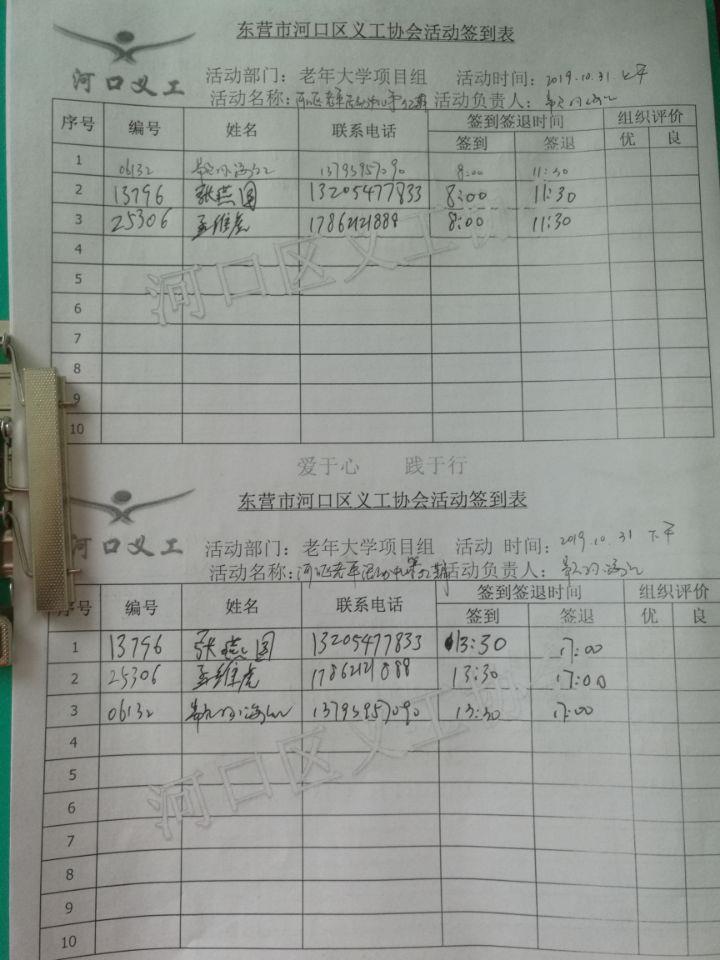 东营市河口区义工协会活动签到表
河口义工
活动部门：老年大学项目组 活动时间：2019.10.31 上午
活动名称： 活动负责人：
序号 编号 姓名 联系电话 签到签退时间 组织评价
签到 签退 优 良
1 06132 13793957090 8:00 11:30
2 13796 张燕国 13205477833 8:00 11:30
3 25306 孟维虎 17862121888 8:00 11:30
4
5
6
7
8
9
10
河口区义工协
爱于心 践于行
东营市河口区义工协会活动签到表
河口义工
活动部门：老年大学项目组 活动 时间：2019.10.31 下午
活动名称： 活动负责人：
序号 编号 姓名 联系电话 签到签退时间 组织评价
签到 签退 优 良
1 13796 张燕国 13205477833 13:30 17:00
2 25306 孟维虎 17862121888 13:30 17:00
3 06132 13793957090 13:30 17:00
4
5
6
7
8
9
10
河口区义工协